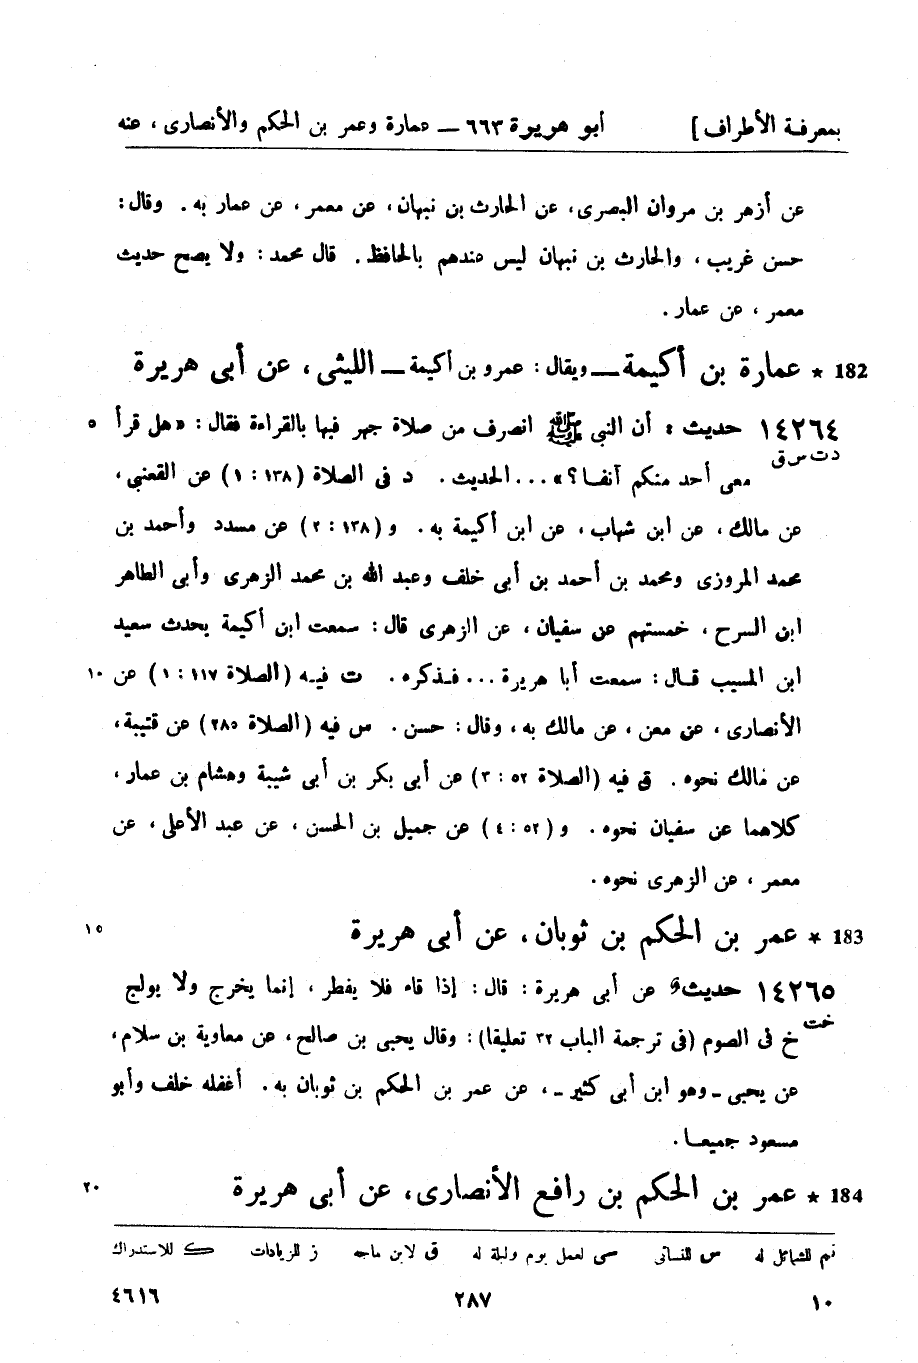 بمعرفة الأطراف] أبو هريرة ٦٦٣ ـــ عمارة وعمر بن الحكم والأنصارى ، عنه
عن أزهر بن مروان البصرى، عن الحارث بن نبهان، عن معمر، عن عمار به. وقال:
حسن غريب، والحارث بن نبهان ليس عندهم بالحافظ. قال محمد: ولا يصح حديث
معمر، عن عمار.
182 * عمارة بن أكيمة ــ ويقال: عمرو بن أكيمة ــ الليثى، عن أبى هريرة
١٤٢٦٤ حديث: أن النبى ﷺ انصرف من صلاة جهر فيها بالقراءة فقال: «هل قرأ ٥
د ت س ق معى أحد منكم آنفـا؟» ...الحديث. د فى الصلاة (١٣٨ : ١) عن القعنبى،
عن مالك، عن ابن شهاب، عن ابن أكيمة به. و (١٣٨ : ٢) عن مسدد وأحمد بن
محمد المروزى ومحمد بن أحمد بن أبى خلف وعبد الله بن محمد الزهرى وأبى الطاهر
ابن السرح، خمستهم عن سفيان، عن الزهرى قال: سمعت ابن أكيمة يحدث سعيد
ابن المسيب قـال: سمعت أبا هريرة ... فـذكره. ت فيـه (الصلاة ١١٧ : ١) عن ١٠
الأنصارى، عن معن، عن مالك به، وقال: حسن. س فيه (الصلاة ٢٨٥) عن قتيبة،
عن مالك نحوه. ق فيه (الصلاة ٥٢ : ٣) عن أبى بكر بن أبى شيبة وهشام بن عمار،
كلاهما عن سفيان نحوه. و (٥٢ : ٤) عن جميل بن الحسن، عن عبد الأعلى، عن
معمر، عن الزهرى نحوه.
183 * عمر بن الحكم بن ثوبان، عن أبى هريرة ١٥
١٤٢٦٥ حديث عن أبى هريرة: قال: إذا قاء فلا يفطر، إنما يخرج ولا يولج
خت خ فى الصوم (فى ترجمة الباب ٣٢ تعليقا): وقال يحيى بن صالح، عن معاوية بن سلام،
عن يحيى ـ وهو ابن أبى كثير ـ، عن عمر بن الحكم بن ثوبان به. أغفله خلف وأبو
مسعود جميعـا.
184 * عمر بن الحكم بن رافع الأنصارى، عن أبى هريرة ٢٠
تم للشمائل له س للنسائى سى لعمل يوم وليلة له ق لابن ماجه ز للزيادات ك للاستدراك
١٠ ٢٨٧ ٤٦١٦